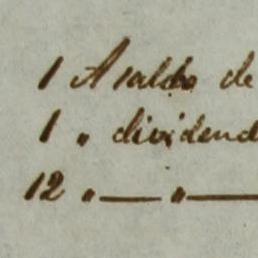 1 A saldo de
1 " dividend
12 " — " —